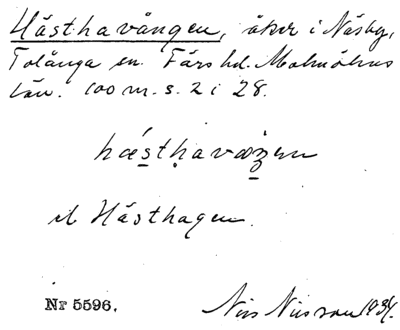 Hästhavången, åker i Näsby,
Tolånga sn. Färs hd. Malmöhus
län. 100 m. s. 2 i 28.
hǽstḥavæŋen
el Hästhagen.
Nr 5596. Nils Nilsson 1934.